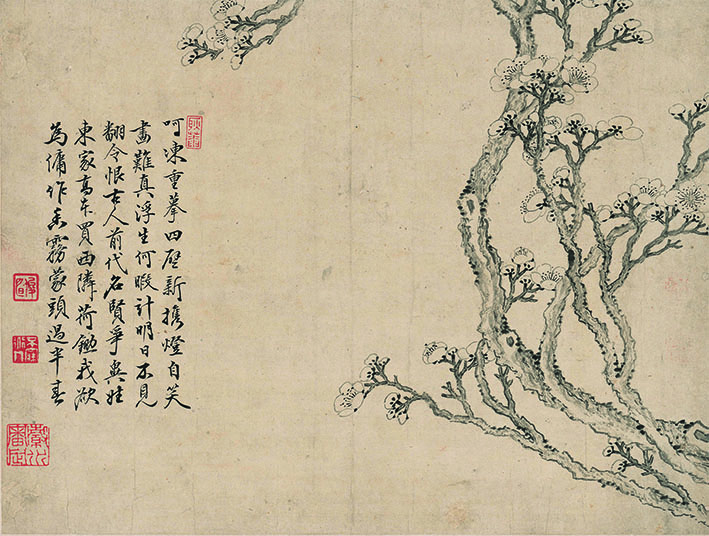 呵凍重摹四壁新擕燈自笑
畫難真浮生何暇計明日不見
翻令恨古人前代名賢爭與姓
東家高本買西隣荷鋤我欲
為傭作香霧蒙頭過半春